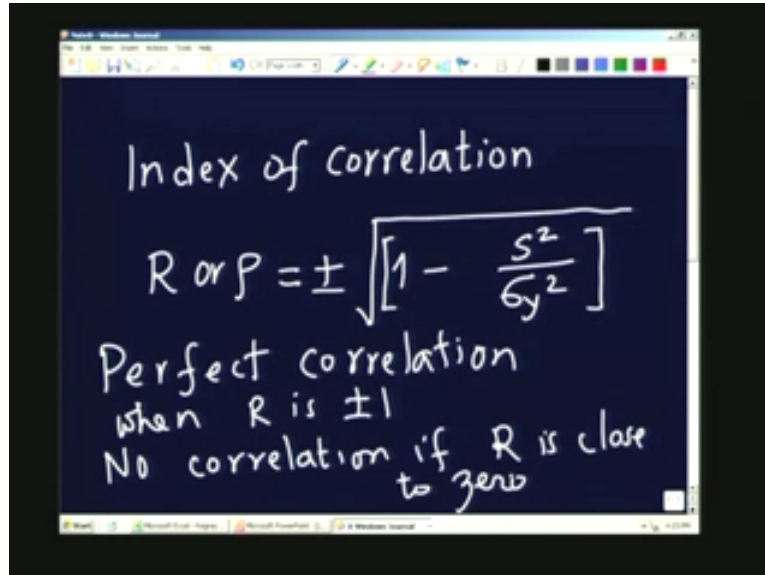 Note8 - Windows Journal
File Edit View Insert Actions Tools Help
Index of correlation
R or ρ = ± √[1 - s²/σy²]
Perfect correlation
when R is ±1
No correlation if R is close
to zero
Start